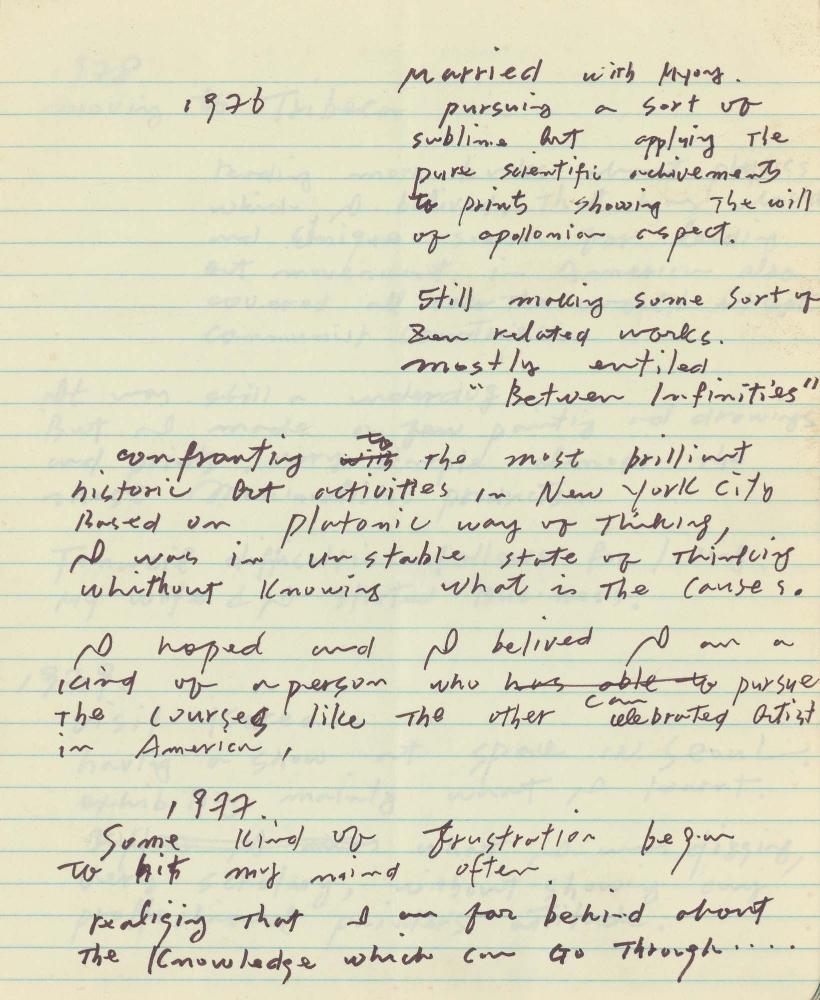 1976
Married with Myong.
pursuing a sort of
sublime But applying The
pure scientific achivements
to prints showing The will
of apollonian aspect.
Still making some sort of
Zen related works.
mostly entiled
"Between Infinities"
confranting with to the most brilliant
historic Art activities in New York City
Based on Platonic way of Thinking,
I was in unstable state of Thinking
whithout Knowing what is The causes.
I hoped and I belived I am a
kind of a person who has able to can pursue
The courses like The other celebrated Artist
in America,
1977.
Some kind of frustration began
To hit my mind often.
realiging That I am far behind about
The Knowledge which can Go Through....